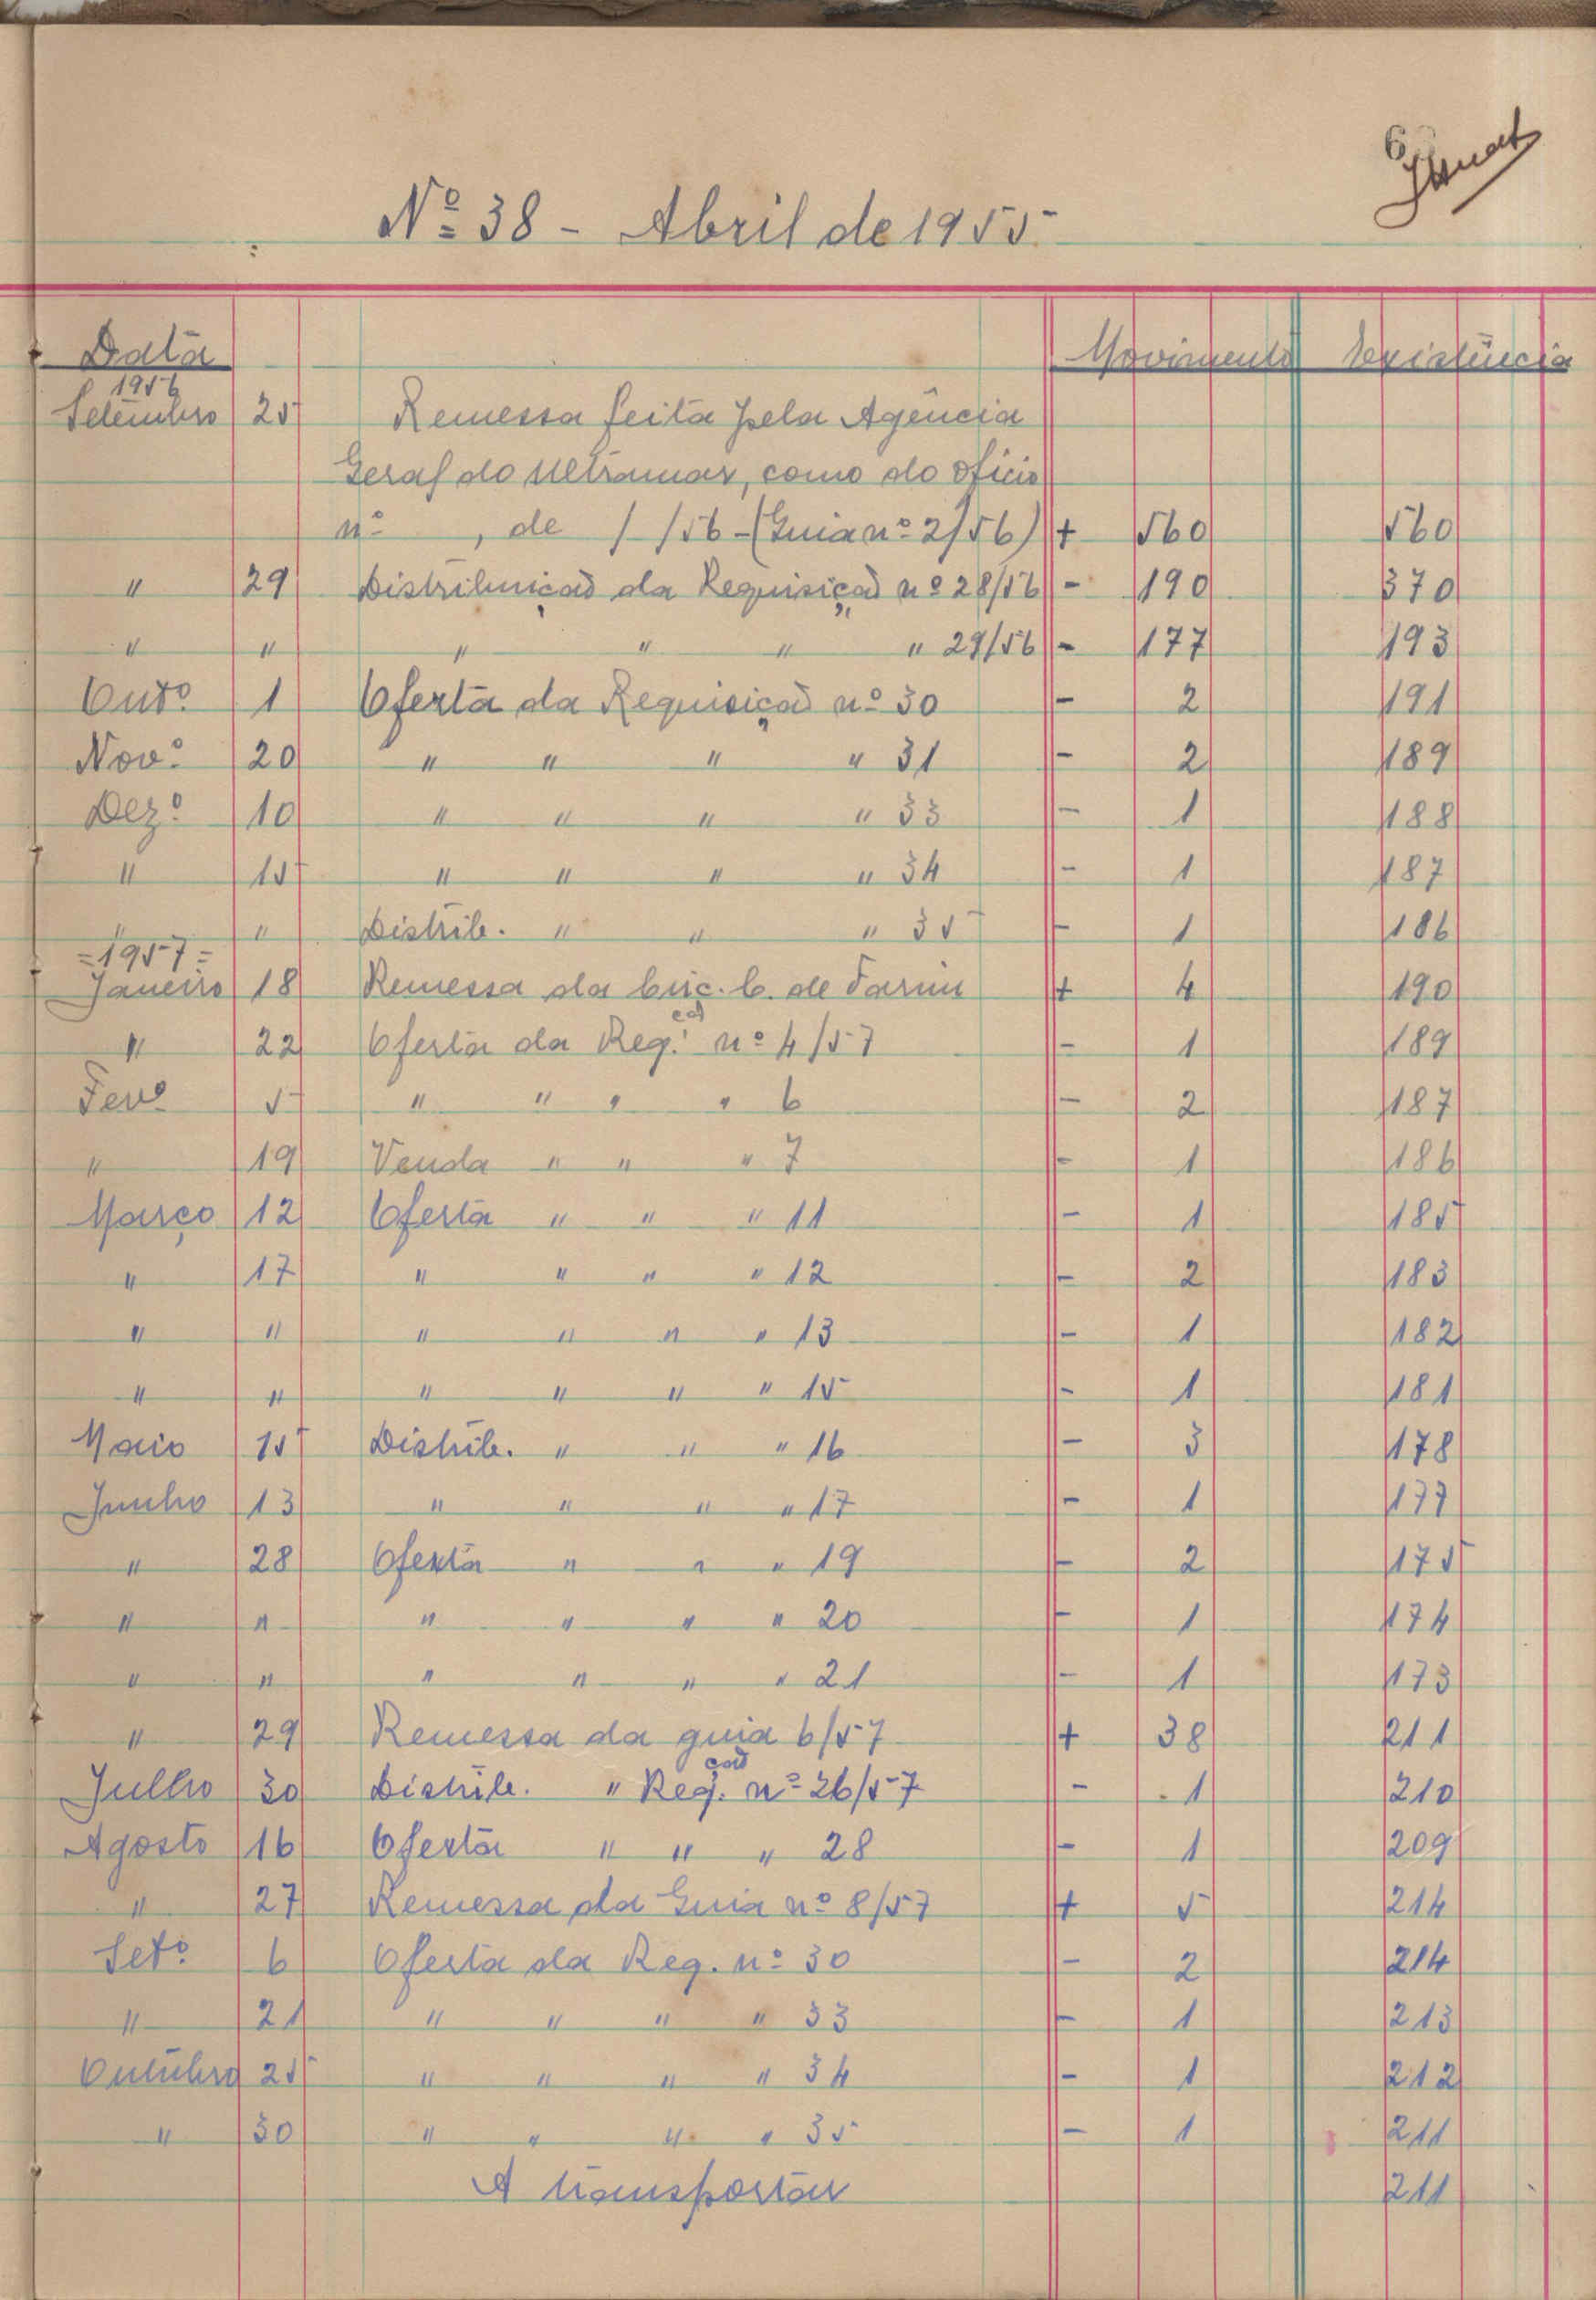 6
Nº 38 - Abril de 1955
Data Movimento Existência
1956
Setembro 25 Remessa feita pela Agência
Geral do Ultramar, como do ofício
nº , de / /56 - (Guia nº 2/56) + 560 560
" 29 Distribuição da Requisição nº 28/56 - 190 370
" " " " " " 29/56 - 177 193
Outº 1 Oferta da Requisição nº 30 - 2 191
Novº 20 " " " " 31 - 2 189
Dezº 10 " " " " 33 - 1 188
" 15 " " " " 34 - 1 187
" " Distrib. " " " 35 - 1 186
=1957=
Janeiro 18 Remessa da Circ. C. de Farim + 4 190
" 22 Oferta da Req.ção nº 4/57 - 1 189
Fevº 5 " " " " 6 - 2 187
" 19 Venda " " " 7 - 1 186
Março 12 Oferta " " " 11 - 1 185
" 17 " " " " 12 - 2 183
" " " " " " 13 - 1 182
" " " " " " 15 - 1 181
Maio 15 Distrib. " " " 16 - 3 178
Junho 13 " " " " 17 - 1 177
" 28 Oferta " " " 19 - 2 175
" " " " " " 20 - 1 174
" " " " " " 21 - 1 173
" 29 Remessa da guia 6/57 + 38 211
Julho 30 Distrib. " Req.ção nº 26/57 - 1 210
Agosto 16 Oferta " " " 28 - 1 209
" 27 Remessa da Guia nº 8/57 + 5 214
Setº 6 Oferta da Req. nº 30 - 2 214
" 21 " " " " 33 - 1 213
Outubro 25 " " " " 34 - 1 212
" 30 " " " " 35 - 1 211
A transportar 211